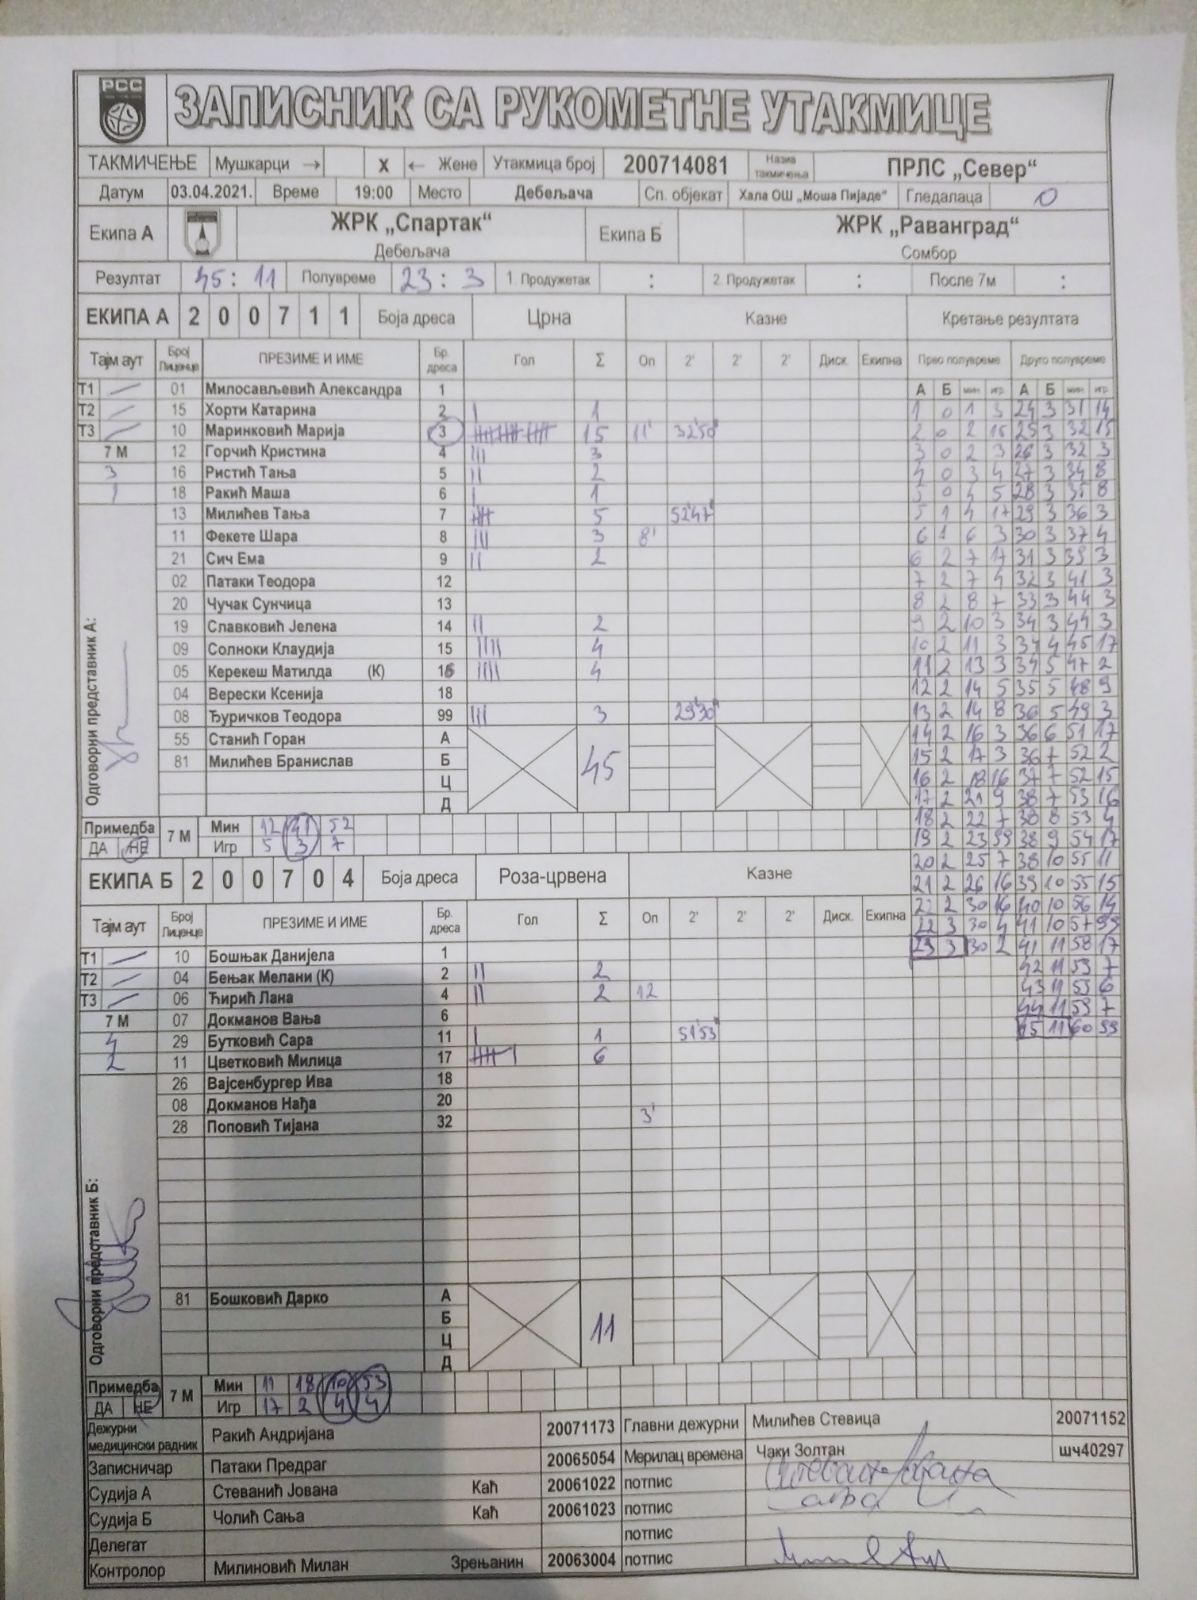 РСС
ЗАПИСНИК СА РУКОМЕТНЕ УТАКМИЦЕ
ТАКМИЧЕЊЕ Мушкарци → X ← Жене Утакмица број 200714081 Назив такмичења ПРЛС „Север“
Датум 03.04.2021. Време 19:00 Место Дебељача Сп. објекат Хала ОШ „Моша Пијаде“ Гледалаца 0
Екипа А ЖРК „Спартак“ Екипа Б ЖРК „Раванград“
Дебељача Сомбор
Резултат 45 : 11 Полувреме 23 : 3 1. Продужетак : 2. Продужетак : После 7м :
ЕКИПА А 2 0 0 7 1 1 Боја дреса Црна Казне Кретање резултата
Тајм аут Број Лиценце ПРЕЗИМЕ И ИМЕ Бр. дреса Гол Σ Оп 2' 2' 2' Диск. Екипна Прво полувреме Друго полувреме
Т1 01 Милосављевић Александра 1 А Б мин игр А Б мин игр
Т2 15 Хорти Катарина 2 1 1 0 1 3 24 3 31 14
Т3 10 Маринковић Марија 3 15 11' 2 0 2 15 25 3 32 15
7 М 12 Горчић Кристина 4 3 3 0 2 3 26 3 32 3
3 16 Ристић Тања 5 2 4 0 3 4 27 3 34 8
1 18 Ракић Маша 6 1 5 0 4 5 28 3 35 8
13 Милићев Тања 7 5 5 1 4 17 29 3 36 3
11 Фекете Шара 8 3 8' 6 1 6 3 30 3 37 4
21 Сич Ема 9 2 6 2 7 17 31 3 39 3
02 Патаки Теодора 12 7 2 7 4 32 3 41 3
20 Чучак Сунчица 13 8 2 8 7 33 3 44 3
19 Славковић Јелена 14 2 9 2 10 3 34 3 44 3
09 Солноки Клаудија 15 4 10 2 11 3 34 4 45 17
05 Керекеш Матилда (К) 16 4 11 2 13 3 34 5 47 2
04 Верески Ксенија 18 12 2 14 5 35 5 48 9
08 Ђуричков Теодора 99 3 13 2 14 8 36 5 49 3
55 Станић Горан А 45 14 2 16 3 36 6 51 17
81 Милићев Бранислав Б 15 2 17 3 36 7 52 2
Ц 16 2 18 16 37 7 52 15
Д 17 2 21 9 38 7 53 16
Одговорни представник А:
Примедба 7 М Мин 12 41 52 18 2 22 7 38 8 53 4
ДА НЕ Игр 5 3 7 19 2 23 99 38 9 54 17
20 2 25 7 38 10 55 11
ЕКИПА Б 2 0 0 7 0 4 Боја дреса Роза-црвена Казне 21 2 26 16 39 10 55 15
22 2 30 16 40 10 56 14
Тајм аут Број Лиценце ПРЕЗИМЕ И ИМЕ Бр. дреса Гол Σ Оп 2' 2' 2' Диск. Екипна 22 3 30 4 41 10 57 99
Т1 10 Бошњак Данијела 1 23 3 30 2 41 11 58 17
Т2 04 Бењак Мелани (К) 2 2 42 11 59 7
Т3 06 Ћирић Лана 4 2 12 43 11 59 6
7 М 07 Докманов Вања 6 44 11 59 7
4 29 Бутковић Сара 11 1 45 11 60 99
2 11 Цветковић Милица 17 6
26 Вајсенбургер Ива 18
08 Докманов Нађа 20
28 Поповић Тијана 32 3'
Одговорни представник Б:
81 Бошковић Дарко А 11
Б
Ц
Д
Примедба 7 М Мин 11 18 30 53
ДА НЕ Игр 17 2 4 4
Дежурни медицински радник Ракић Андријана 20071173 Главни дежурни Милићев Стевица 20071152
Записничар Патаки Предраг 20065054 Мерилац времена Чаки Золтан шч40297
Судија А Стеванић Јована Каћ 20061022 потпис
Судија Б Чолић Сања Каћ 20061023 потпис
Делегат потпис
Контролор Милиновић Милан Зрењанин 20063004 потпис